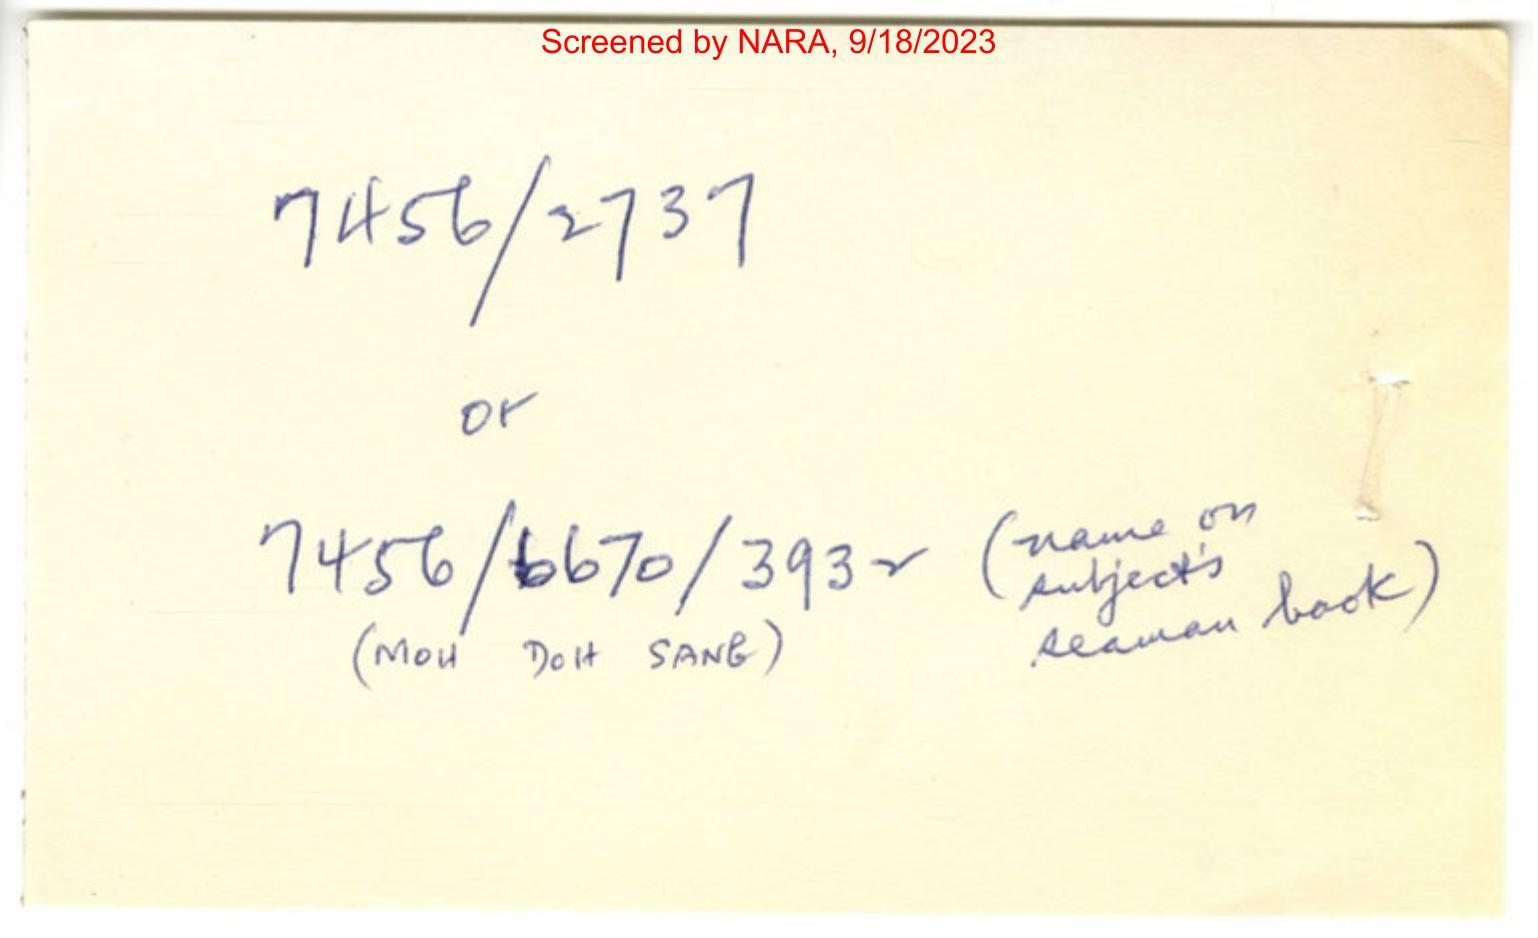 Screened by NARA, 9/18/2023
7456/2737
or
7456/6670/3932 (name on
subject's
seaman book)
(MOH DOH SANG)